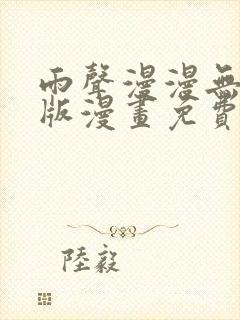 雨聲漫漫無
版漫畫免費
陸毅